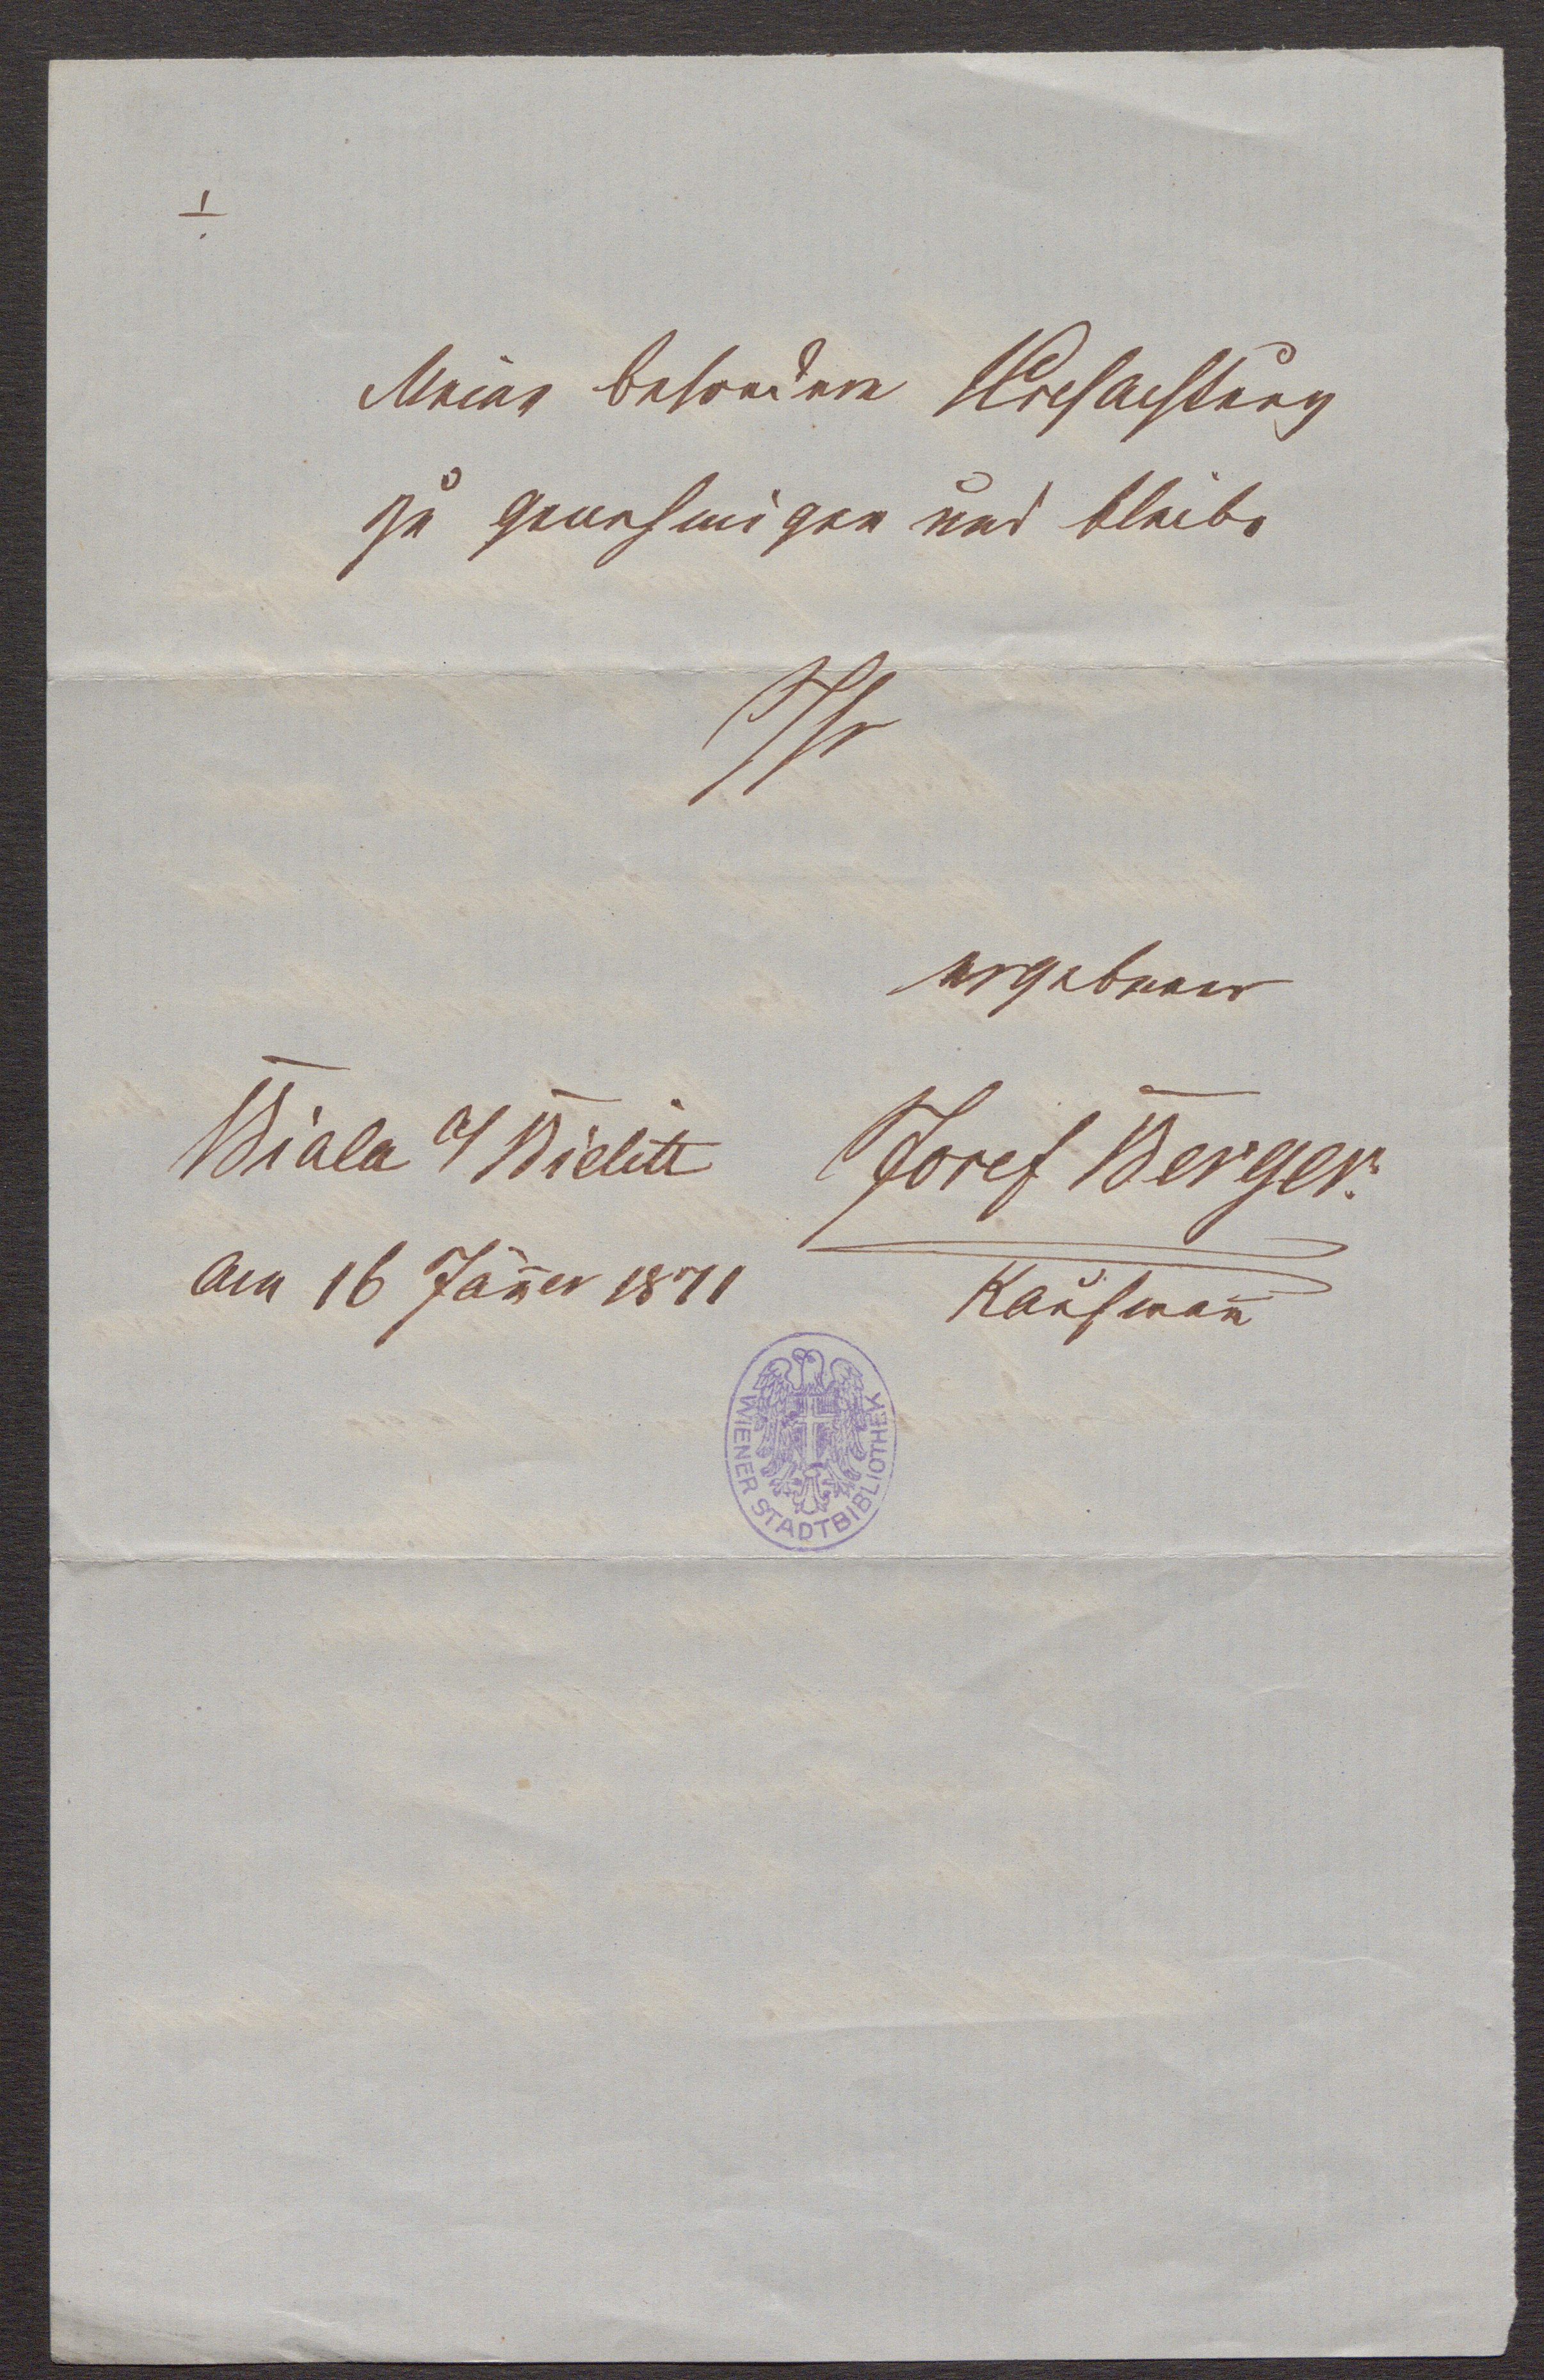 Meine besondere Hochachtung
zu genehmigen und bleibe
Ihr
ergebener
Biala a/ Bielitz Josef Berger.
am 16 Jän̄er 1871 Kaufman̄
WIENER STADTBIBLIOTHEK